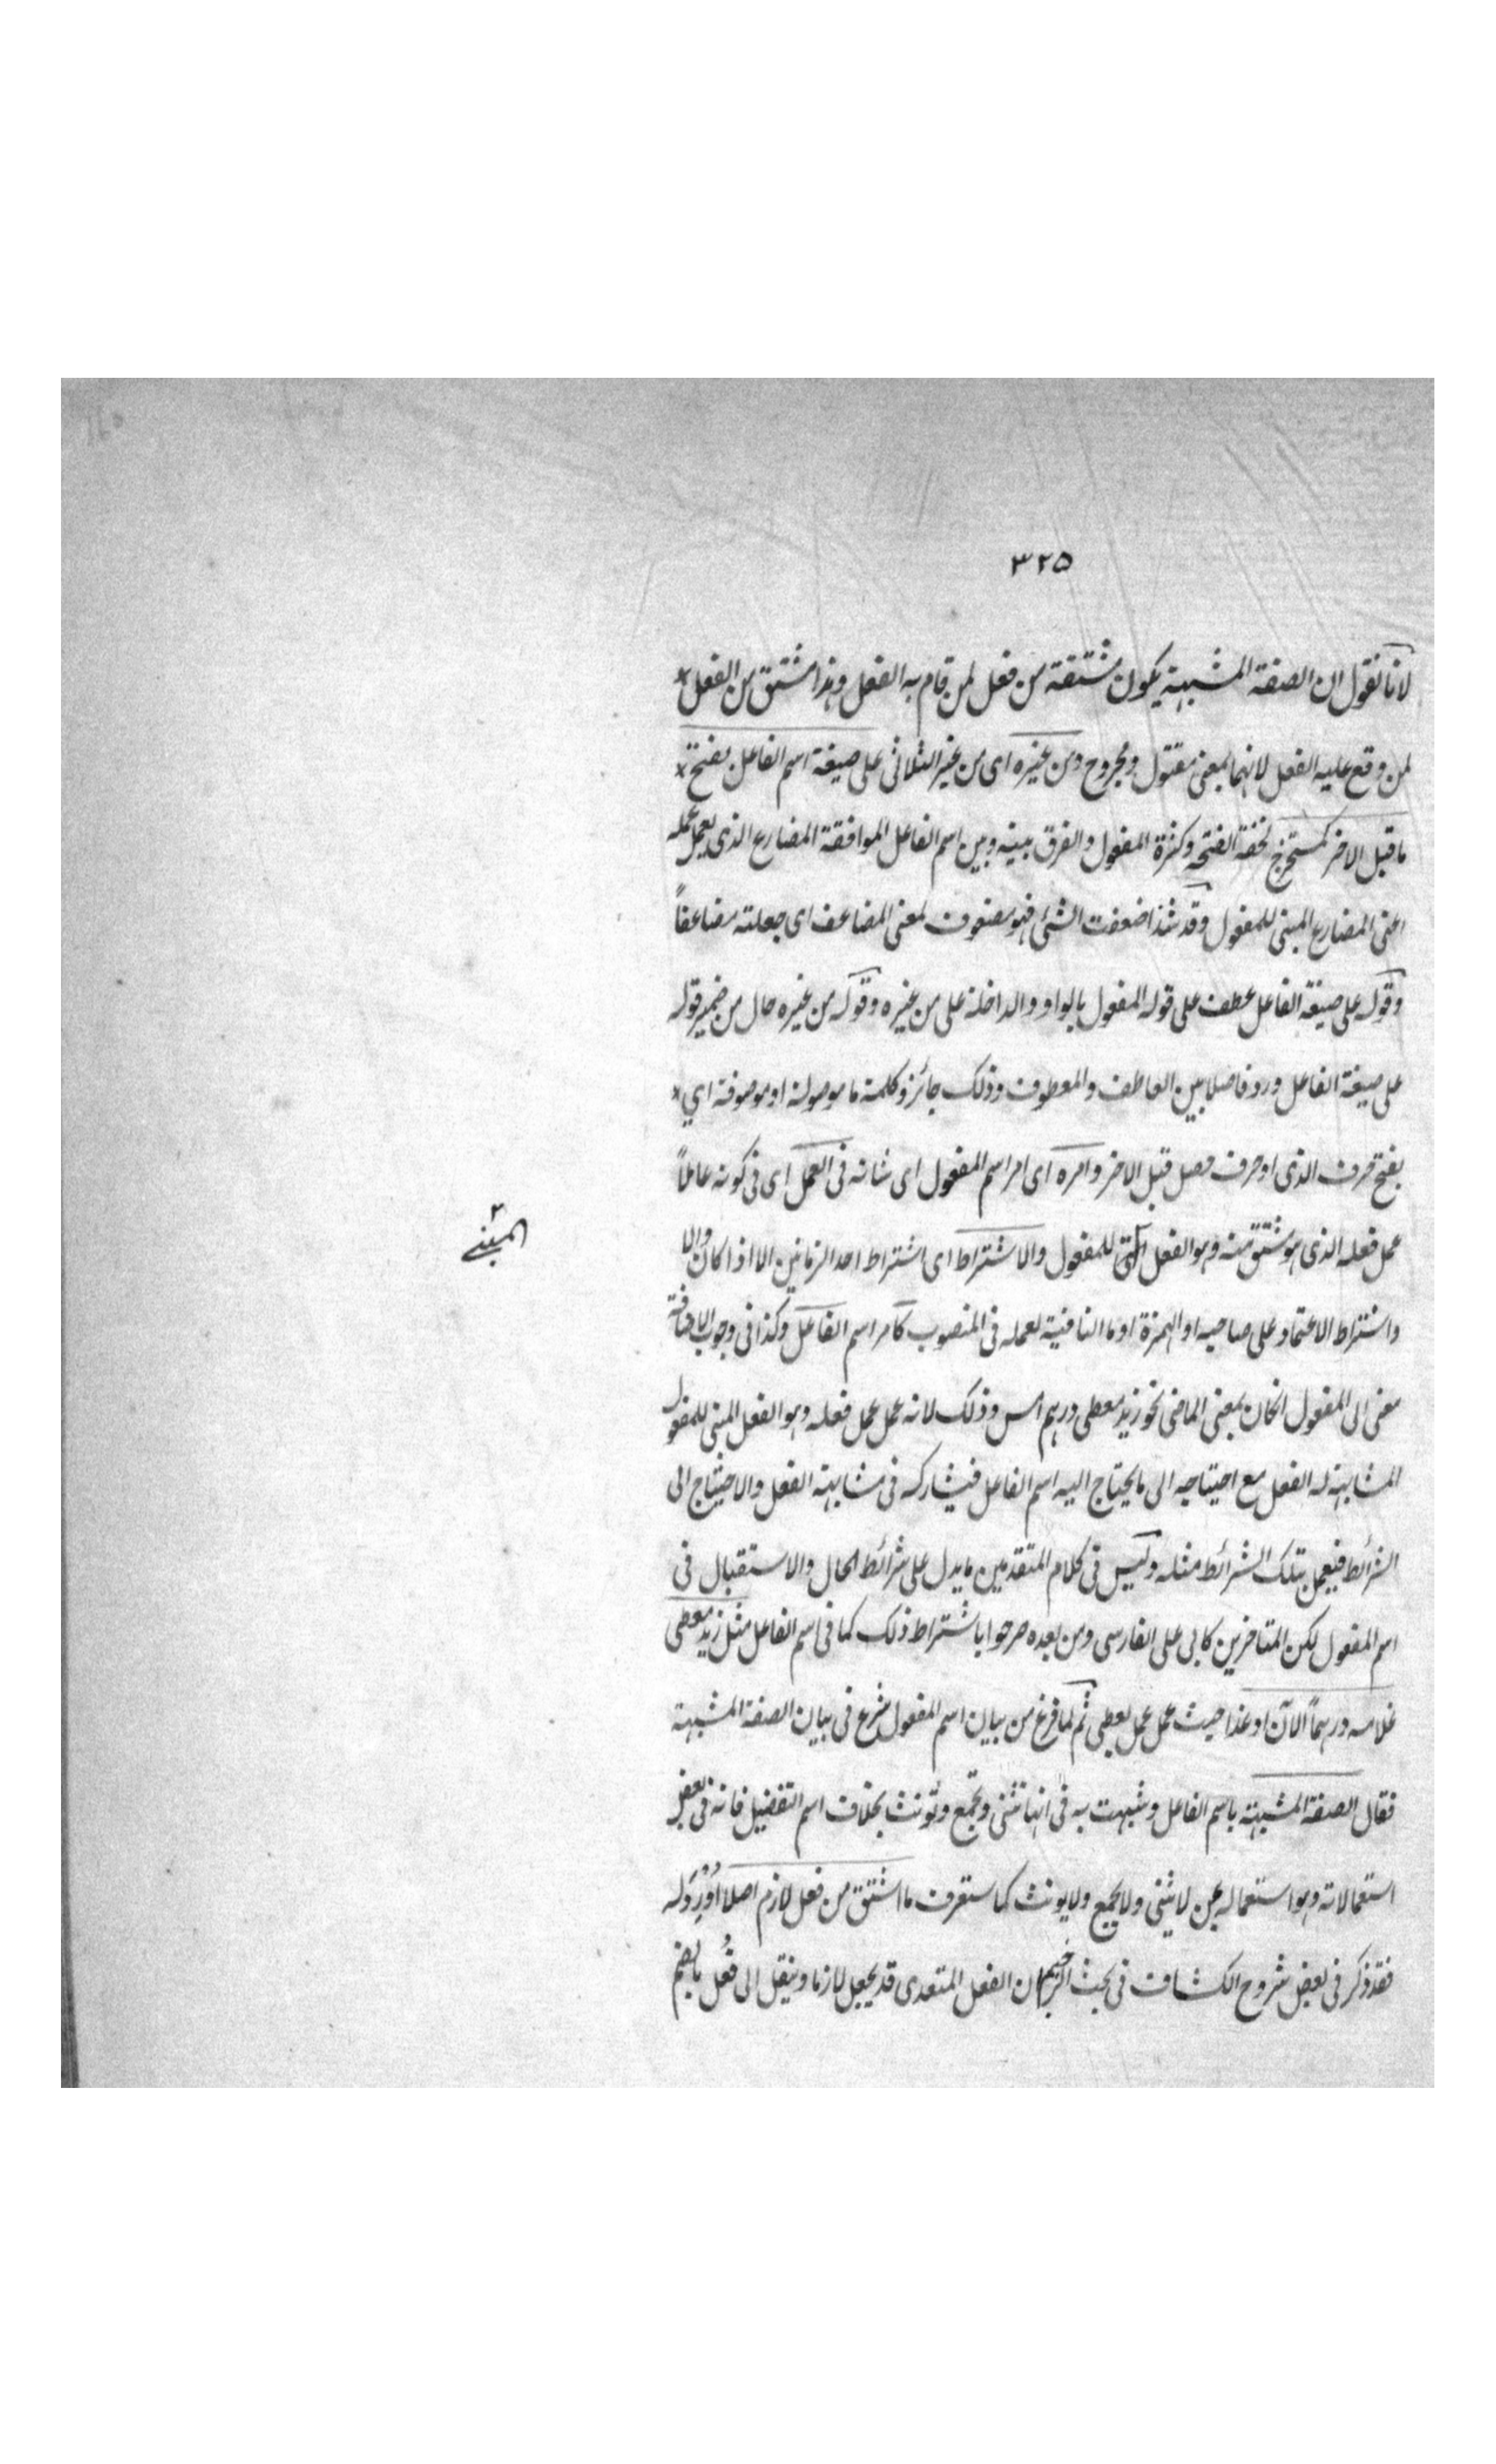 ۳۲۵
لانا نقول ان الصفة المشبهة يكون مشتقة من فعل لمن قام به الفعل وهذا مشتق من الفعل
لمن وقع عليه الفعل لانهما بمعنى مقتول ومجروح ومن غيره اى من غير الثلاثى على صيغة اسم الفاعل بفتح
ما قبل الاخر كمستخرج لخفة الفتحة وكثرة المفعول والفرق بينه وبين اسم الفاعل الموافقة المضارع الذى يعمل عمله
اعنى المضارع المبنى للمفعول وقد شذ اضعفت الشئ فهو مضعوف لمعنى المضاعف اى جعلته مضاعفاً
وقوله على صيغة الفاعل عطف على قوله المفعول بالواو والداخلة على من غيره وقوله من غيره حال من ضمير قوله
على صيغة الفاعل ورد فاصلا بين العاطف والمعطوف وذلك جائز وكلمة ما موصولة او موصوفة اي
بفتح حرف الذى او حرف حصل قبل الاخر وامره اى امر اسم المفعول اى شانه فى العمل اى فى كونه عاملاً
عمل فعله الذى هو مشتق منه وهو الفعل للمفعول والاشتراط اى اشتراط احد الزمانين الا اذا كان والا
المبنے
واشتراط الاعتماد على صاحبه او الهمزة او ما النافية لعمله فى المنصوب كامر اسم الفاعل وكذا فى وجوب الاضافة
معنى الى المفعول انكان بمعنى الماضى نحو زيد معطى درهم امس وذلك لانه عمل عمل فعله وهو الفعل المبنى للمفعول
المشابهة له الفعل مع احتياجه الى ما يحتاج اليه اسم الفاعل فيشاركه فى مشابهة الفعل والاحتياج الى
الشرائط فيعمل بتلك الشرائط مثله وليس فى كلام المتقدمين ما يدل على شرائط الحال والاستقبال فى
اسم المفعول لكن المتاخرين كابى على الفارسى ومن بعده صرحوا باشتراط ذلك كما فى اسم الفاعل مثل زيد معطى
غلامه درهماً الآن او غدا حيث عمل عمل يعطى ثم لما فرغ من بيان اسم المفعول شرع فى بيان الصفة المشبهة
فقال الصفة المشبهة باسم الفاعل وشبهت به فى انها تثنى وتجمع وتونث بخلاف اسم التفضيل فانه فى بعض
استعمالاته وهو استعماله بمن لا يثنى ولا يجمع ولا يونث كما ستعرف ما اشتق من فعل لازم اصلا اُوْرِدَله
فقد ذكر فى بعض شروح الكشاف فى بحث الرحيم ان الفعل المتعدى قد يجعل لازما وينقل الى فعُل بالضم